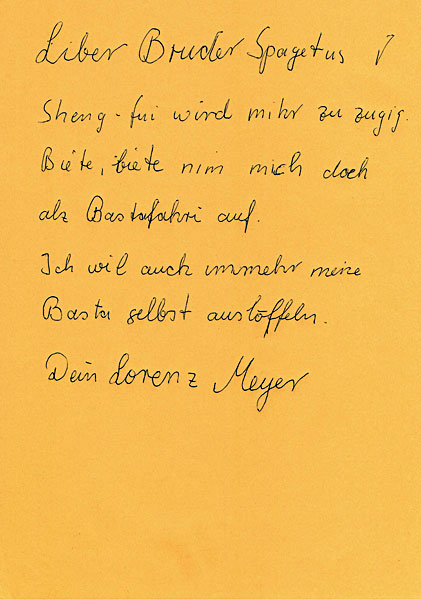 Liber Bruder Spagetus !
Sheng-fui wird mihr zu zugig.
Biete, biete nim mich doch
alz Bastafahri auf.
Ich wil auch immehr meine
Basta selbst auslöffeln.
Dein Lorenz Meyer